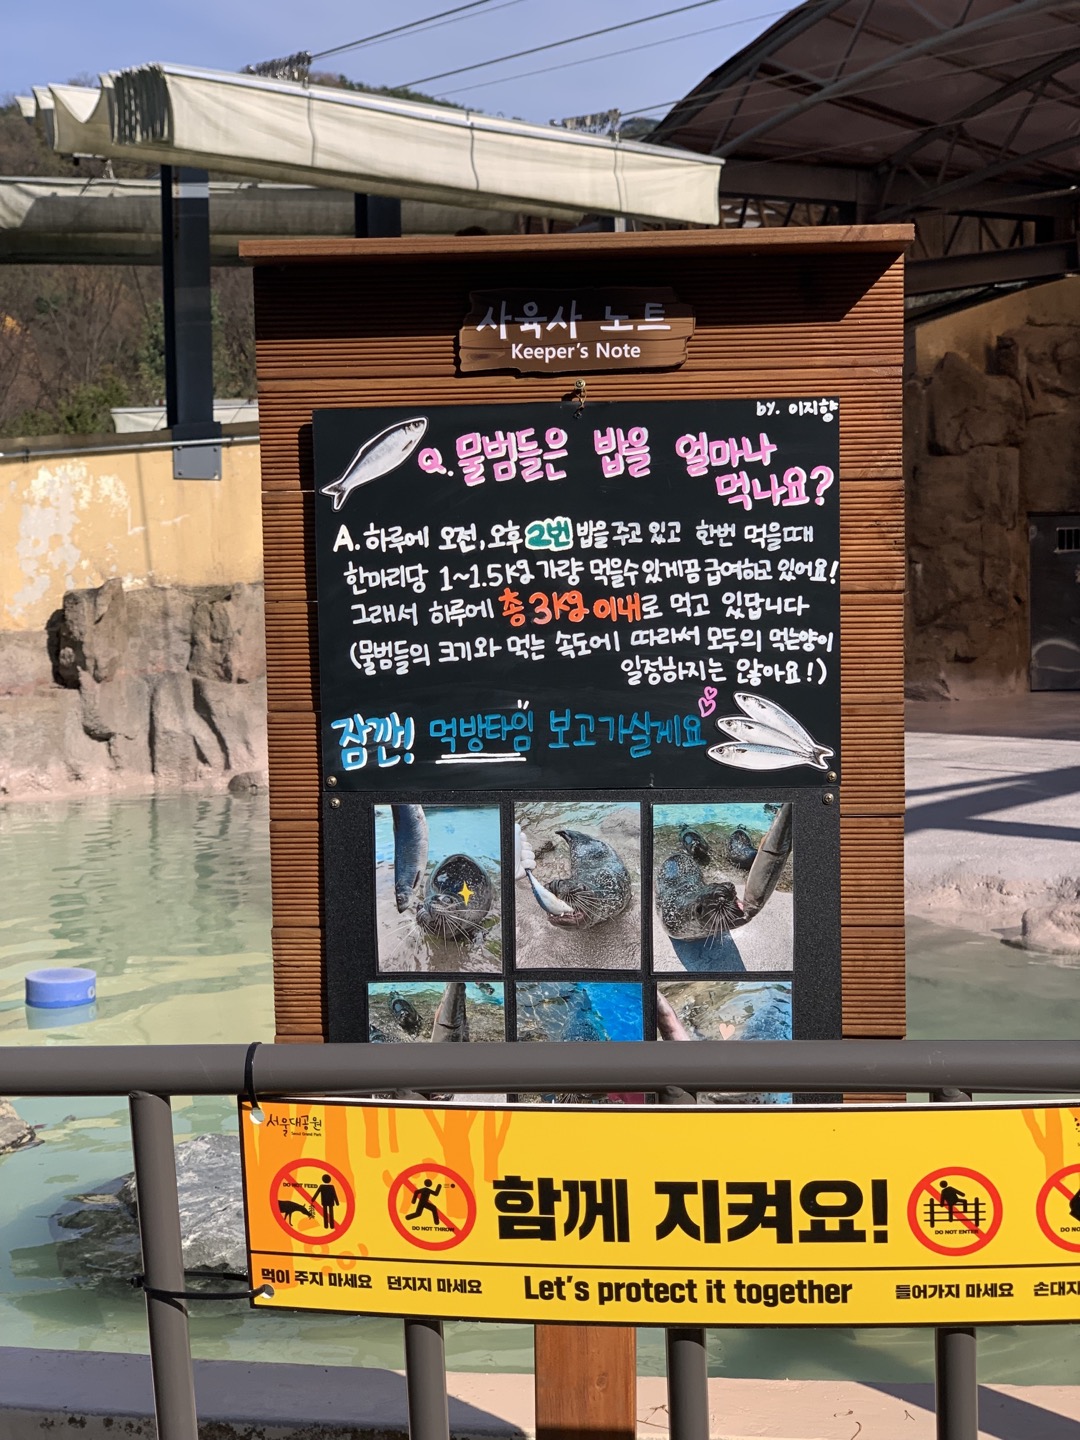 사육사 노트
Keeper's Note
by. 이지향
Q. 물범들은 밥을 얼마나
먹나요?
A. 하루에 오전, 오후 2번 밥을 주고 있고 한번 먹을때
한마리당 1~1.5kg 가량 먹을수 있게끔 급여하고 있어요!
그래서 하루에 총 3kg 이내로 먹고 있답니다
(물범들의 크기와 먹는 속도에 따라서 모두의 먹는양이
일정하지는 않아요!)
잠깐! 먹방타임 보고가실게요
서울대공원
Seoul Grand Park
DO NOT FEED
DO NOT THROW
함께 지켜요!
DO NOT ENTER
DO NO
먹이 주지 마세요
던지지 마세요
Let's protect it together
들어가지 마세요
손대지